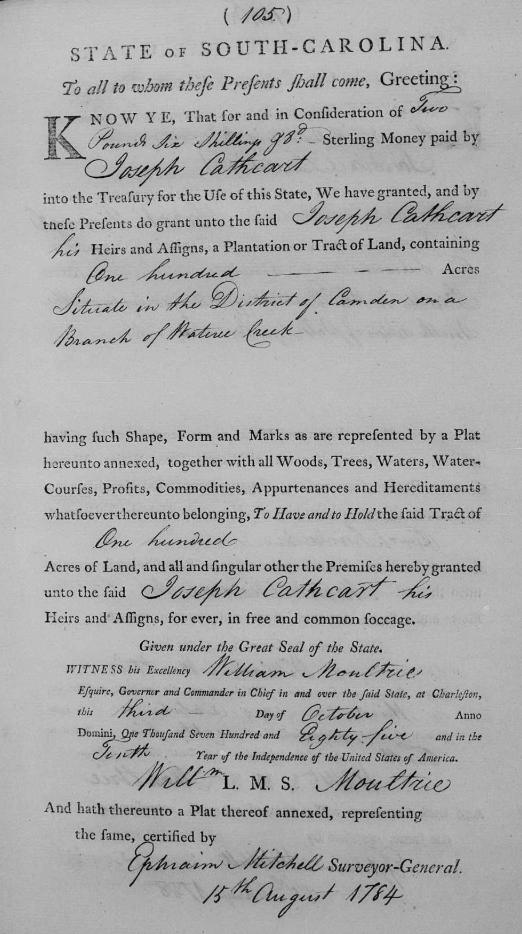 ( 105 )
STATE OF SOUTH-CAROLINA.
To all to whom theſe Preſents ſhall come, Greeting:
KNOW YE, That for and in Conſideration of Two
Pounds Six Shillings & 8d. Sterling Money paid by
Joseph Cathcart
into the Treaſury for the Uſe of this State, We have granted, and by
theſe Preſents do grant unto the ſaid Joseph Cathcart
his Heirs and Aſſigns, a Plantation or Tract of Land, containing
One hundred — — — — Acres
Situate in the District of Camden on a
Branch of Wateree Creek
having ſuch Shape, Form and Marks as are repreſented by a Plat
hereunto annexed, together with all Woods, Trees, Waters, Water-
Courſes, Profits, Commodities, Appurtenances and Hereditaments
whatſoever thereunto belonging, To Have and to Hold the ſaid Tract of
One hundred
Acres of Land, and all and ſingular other the Premiſes hereby granted
unto the ſaid Joseph Cathcart his
Heirs and Aſſigns, for ever, in free and common ſoccage.
Given under the Great Seal of the State.
WITNESS his Excellency William Moultrie
Eſquire, Governor and Commander in Chief in and over the ſaid State, at Charleſton,
this third — Day of October Anno
Domini, One Thouſand Seven Hundred and Eighty-five and in the
Tenth Year of the Independence of the United States of America.
Willm L. M. S. Moultrie
And hath thereunto a Plat thereof annexed, repreſenting
the ſame, certified by
Ephraim Mitchell Surveyor-General.
15th August 1784